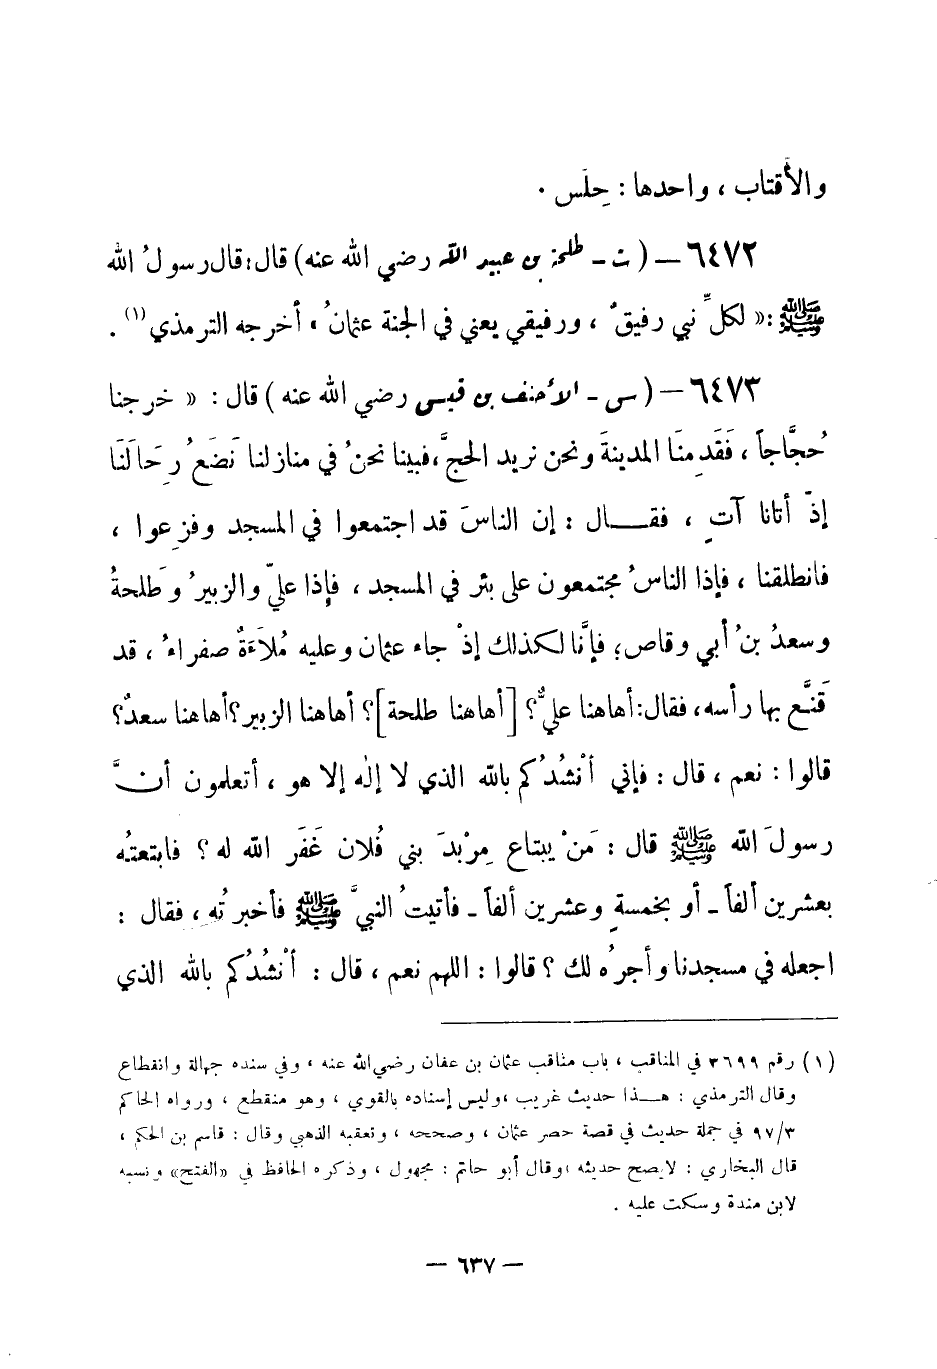 والأقتاب ، واحدها : حِلَس .
٦٤٧٢ – ( ت – طلحة بن عبيد الله رضي الله عنه ) قال : قال رسولُ الله
ﷺ : « لكلِّ نبي رفيقٌ ، ورفيقي يعني في الجنة عثمانُ ، أخرجه الترمذي (١) .
٦٤٧٣ – ( س – الأحنف بن قيس رضي الله عنه ) قال : « خرجنا
حُجَّاجاً ، فَقَدِمنَا المدينةَ ونحن نريد الحجَّ ، فبينا نحنُ في منازلنا نَضَعُ رِحَالَنَا
إذْ أتانا آتٍ ، فقال : إن الناسَ قد اجتمعوا في المسجد وفزِعوا ،
فانطلقنا ، فإذا الناسُ مجتمعون على بئر في المسجد ، فإذا عليّ والزبيرُ وَطلحةُ
وسعدُ بنُ أبي وقاص ؛ فإنَّا لكذلك إذْ جاء عثمان وعليه مُلاَءَةٌ صفراءُ ، قد
قَنَّع بها رأسه ، فقال : أهاهنا عليٌّ ؟ [ أهاهنا طلحة ] ؟ أهاهنا الزبير ؟ أهاهنا سعدٌ ؟
قالوا : نعم ، قال : فإني أنْشُدُكم بالله الذي لا إله إلا هو ، أتعلمون أنَّ
رسولَ الله ﷺ قال : مَنْ يبتاع مِرْبدَ بني فُلان غَفَر الله له ؟ فابتعتُه
بعشرين ألفاً – أو بخمسةٍ وعشرين ألفاً – فأتيتُ النبيَّ ﷺ فأخبرتُه ، فقال :
اجعله في مسجدنا وأجرُه لك ؟ قالوا : اللهم نعم ، قال : أنْشُدُكم بالله الذي
(١) رقم ٣٦٩٩ في المناقب ، باب مناقب عثمان بن عفان رضي الله عنه ، وفي سنده جهالة وانقطاع
وقال الترمذي : هذا حديث غريب ، وليس إسناده بالقوي ، وهو منقطع ، ورواه الحاكم
٩٧/٣ في جملة حديث في قصة حصر عثمان ، وصححه ، وتعقبه الذهبي وقال : قاسم بن الحكم ،
قال البخاري : لا يصح حديثه ، وقال أبو حاتم : مجهول ، وذكره الحافظ في «الفتح» ونسبه
لابن مندة وسكت عليه .
– ٦٣٧ –